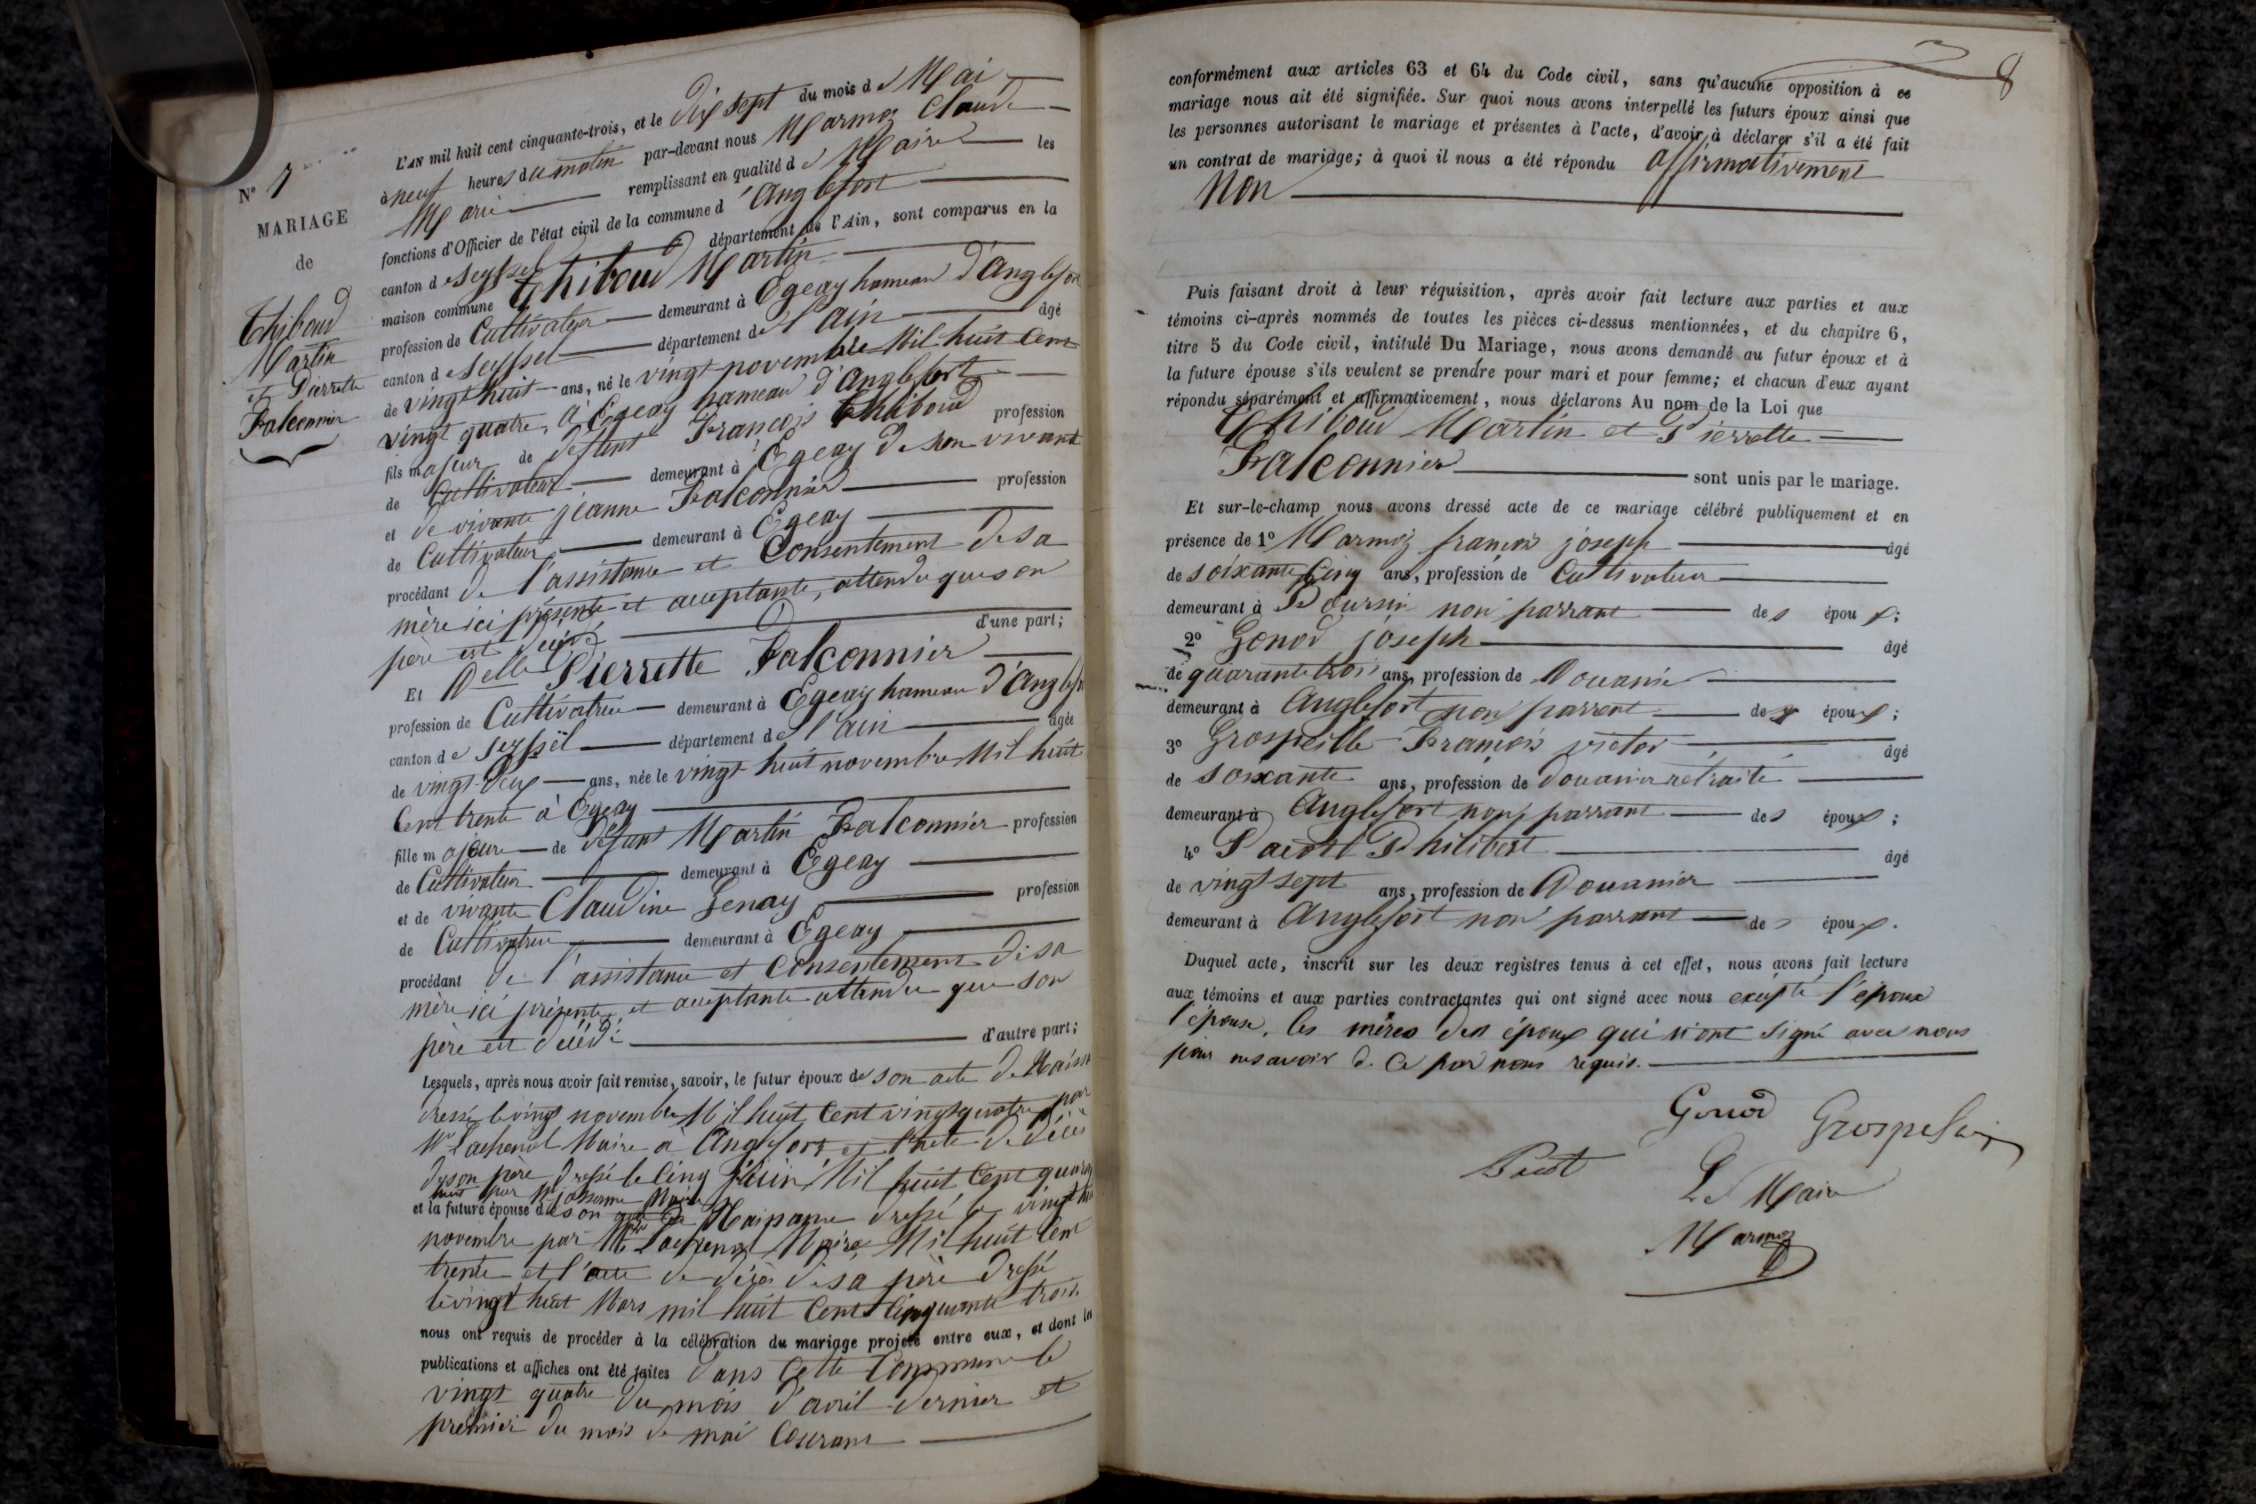 N° 7
MARIAGE
de
Thiboud
Martin
et Pierrette
Falconnier
L'AN mil huit cent cinquante-trois, et le dix sept du mois de Mai
à neuf heures du matin par-devant nous Marmoz Claude
Marie remplissant en qualité de Maire les
fonctions d'Officier de l'état civil de la commune d'Anglefort
canton de Seyssel département de l'Ain, sont comparus en la
maison commune Thiboud Martin
profession de Cultivateur demeurant à Egeay hameau d'Anglefort
canton de Seyssel département de l'ain âgé
de vingt huit ans, né le vingt novembre Mil huit Cent
vingt quatre, à Egeay hameau d'Anglefort
fils majeur de defunt François Thiboud profession
de Cultivateur demeurant à Egeay de son vivant
et de vivante jeanne Falconnier profession
de Cultivateur demeurant à Egeay
procédant de l'assistance et Consentement de sa
mère ici présente et acceptante, attendu que son
père est décédé d'une part;
Et Delle Pierrette Falconnier
profession de Cultivatrice demeurant à Egeay hameau d'Anglefort
canton de seyssel département de l'ain âgée
de vingt-deux ans, née le vingt huit novembre Mil huit
Cent trente à Egeay
fille majeure de defunt Martin Falconnier profession
de Cultivateur demeurant à Egeay
et de vivante Claudine Genay profession
de Cultivatrice demeurant à Egeay
procédant de l'assistance et Consentement de sa
mère ici présente et acceptante attendu que son
père est décédé d'autre part;
Lesquels, après nous avoir fait remise, savoir, le futur époux de son acte de Naissance
dressé le vingt novembre Mil huit Cent vingt quatre par
Mr Lachenal Maire à Anglefort et l'acte de décès
de son père dressé le Cinq juin Mil huit Cent quarante
huit par Mr Maire
et la future épouse de son acte de Naissance dressé le vingt huit
novembre par Mr Lachenal Maire Mil huit Cent
trente et l'acte de décès de sa père dressé
le vingt huit Mars mil huit Cent Cinquante trois
nous ont requis de procéder à la célébration du mariage projeté entre eux, et dont les
publications et affiches ont été faites dans Cette Commune le
vingt quatre du mois d'avril dernier et
premier du mois de mai Courant
8
conformément aux articles 63 et 64 du Code civil, sans qu'aucune opposition à ce
mariage nous ait été signifiée. Sur quoi nous avons interpellé les futurs époux ainsi que
les personnes autorisant le mariage et présentes à l'acte, d'avoir à déclarer s'il a été fait
un contrat de mariage; à quoi il nous a été répondu affirmativement
Non
Puis faisant droit à leur réquisition, après avoir fait lecture aux parties et aux
témoins ci-après nommés de toutes les pièces ci-dessus mentionnées, et du chapitre 6,
titre 5 du Code civil, intitulé Du Mariage, nous avons demandé au futur époux et à
la future épouse s'ils veulent se prendre pour mari et pour femme; et chacun d'eux ayant
répondu séparément et affirmativement, nous déclarons Au nom de la Loi que
Thiboud Martin et Pierrette
Falconnier sont unis par le mariage.
Et sur-le-champ nous avons dressé acte de ce mariage célébré publiquement et en
présence de 1° Marmoz françois joseph âgé
de soixante Cinq ans, profession de Cultivateur
demeurant à non parrant des époux;
2° Gonod joseph âgé
de quarante trois ans, profession de Douanier
demeurant à Anglefort non parrant des époux;
3° François victor âgé
de soixante ans, profession de douanier retraité
demeurant à Anglefort non parrant des époux;
4° Philibert âgé
de vingt sept ans, profession de Douanier
demeurant à Anglefort non parrant des époux.
Duquel acte, inscrit sur les deux registres tenus à cet effet, nous avons fait lecture
aux témoins et aux parties contractantes qui ont signé avec nous excepté l'époux
l'épouse, les mères des époux qui n'ont signé avec nous
pour ne savoir de Ce par nous requis.
Gonod
Le Maire
Marmoz